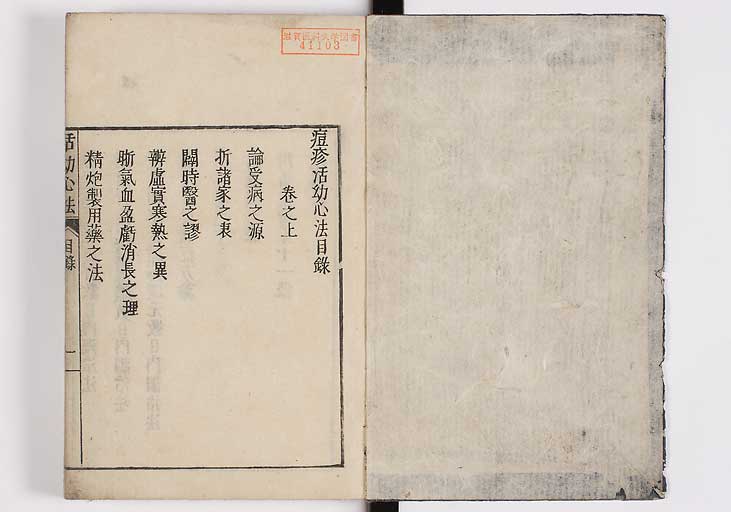 滋賀医科大学図書
41103
痘疹活幼心法目錄
卷之上
論受病之源
折諸家之衷
闢時醫之謬
辨虛實寒熱之異
晰氣血盈虧消長之理
精炮製用藥之法
活幼心法
目錄
一